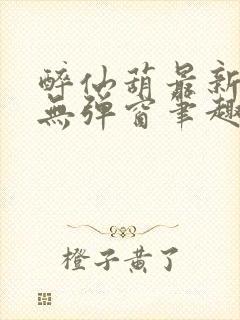 醉仙葫最新
無彈窗筆趣
橙子黄了